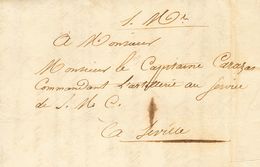 S. Mr.
A Monsieur
Monsieur le Capitaine Carazas
Commandant l'artillerie au Service
de S. M. C.
A Seville